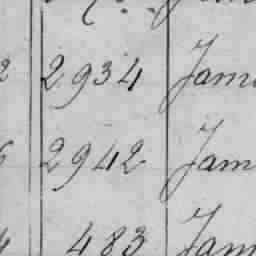 2 2934 Jam
2942 Jam
483 Jam